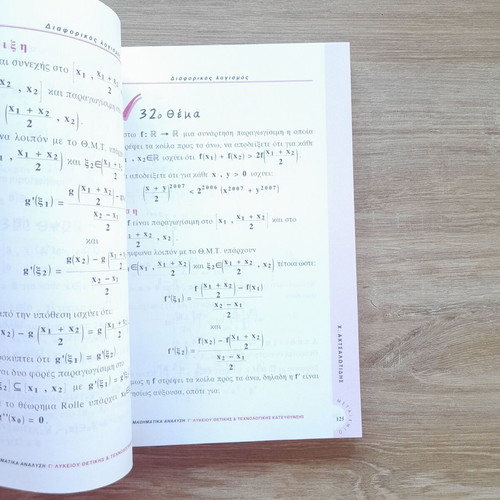 Διαφορικός λογισμός
ιξη
αι συνεχής στο [x₁ , (x₁ + x₂)/2]
x₂ , x₂] και παραγωγίσιμη στ
((x₁ + x₂)/2 , x₂).
να λοιπόν με το Θ.Μ.Τ.
, (x₁ + x₂)/2) και ξ₂∈
g'(ξ₁) = (g((x₁ + x₂)/2) –
x₂ – x₁
2
και
g'(ξ₂) = (g(x₂) – g((x₁ + x₂)/2))/((x₂ – x₁)/2)
από την υπόθεση ισχύει ότι:
x₂) – g((x₁ + x₂)/2) = g(
ροκύπτει ότι g'(ξ₁) = g'(ξ₂)
ναι δυο φορές παραγωγίσιμη στο
ξ₂] ⊆ [x₁ , x₂] με g'(ξ₁) =
με το θεώρημα Rolle υπάρχει
g''(x₀) = 0 .
ΜΑΘΗΜΑΤΙΚΑ ΑΝΑΛΥΣΗ Γ' ΛΥΚΕΙΟΥ ΘΕΤΙΚΗΣ & ΤΕΧΝΟΛ
Διαφορικός λογισμός
32ο Θέμα
στω f: ℝ → ℝ μια συνάρτηση παραγωγίσιμη η οποία
τρέφει τα κοίλα προς τα άνω, να αποδείξετε ότι για κάθε
, x₂∈ℝ ισχύει ότι f(x₁) + f(x₂) > 2f((x₁ + x₂)/2).
αποδείξετε ότι για κάθε x , y > 0 ισχύει:
((x + y)/2)²⁰⁰⁷ < 2²⁰⁰⁶ (x²⁰⁰⁷ + y²⁰⁰⁷)
η
f είναι παραγωγίσιμη στο [x₁ , (x₁ + x₂)/2] και στο
x₂ , x₂].
μφωνα λοιπόν με το Θ.Μ.Τ υπάρχουν
∈(x₁ , (x₁ + x₂)/2) και ξ₂∈((x₁ + x₂)/2 , x₂) τέτοια ώστε:
f'(ξ₁) = (f((x₁ + x₂)/2) – f(x₁))/((x₂ – x₁)/2)
και
f'(ξ₂) = (f(x₂) – f((x₁ + x₂)/2))/((x₂ – x₁)/2)
μως η f στρέφει τα κοίλα προς τα άνω, δηλαδή η f' είναι
ησίως αύξουσα, οπότε για:
Χ. ΑΧΤΣΑΛΩΤΙΔΗΣ
123
ΜΑΘΗΜΑΤΙΚΑ ΑΝΑΛΥΣΗ Γ' ΛΥΚΕΙΟΥ ΘΕΤΙΚΗΣ & ΤΕΧΝΟΛΟΓΙΚΗΣ ΚΑΤΕΥΘΥΝΣΗΣ